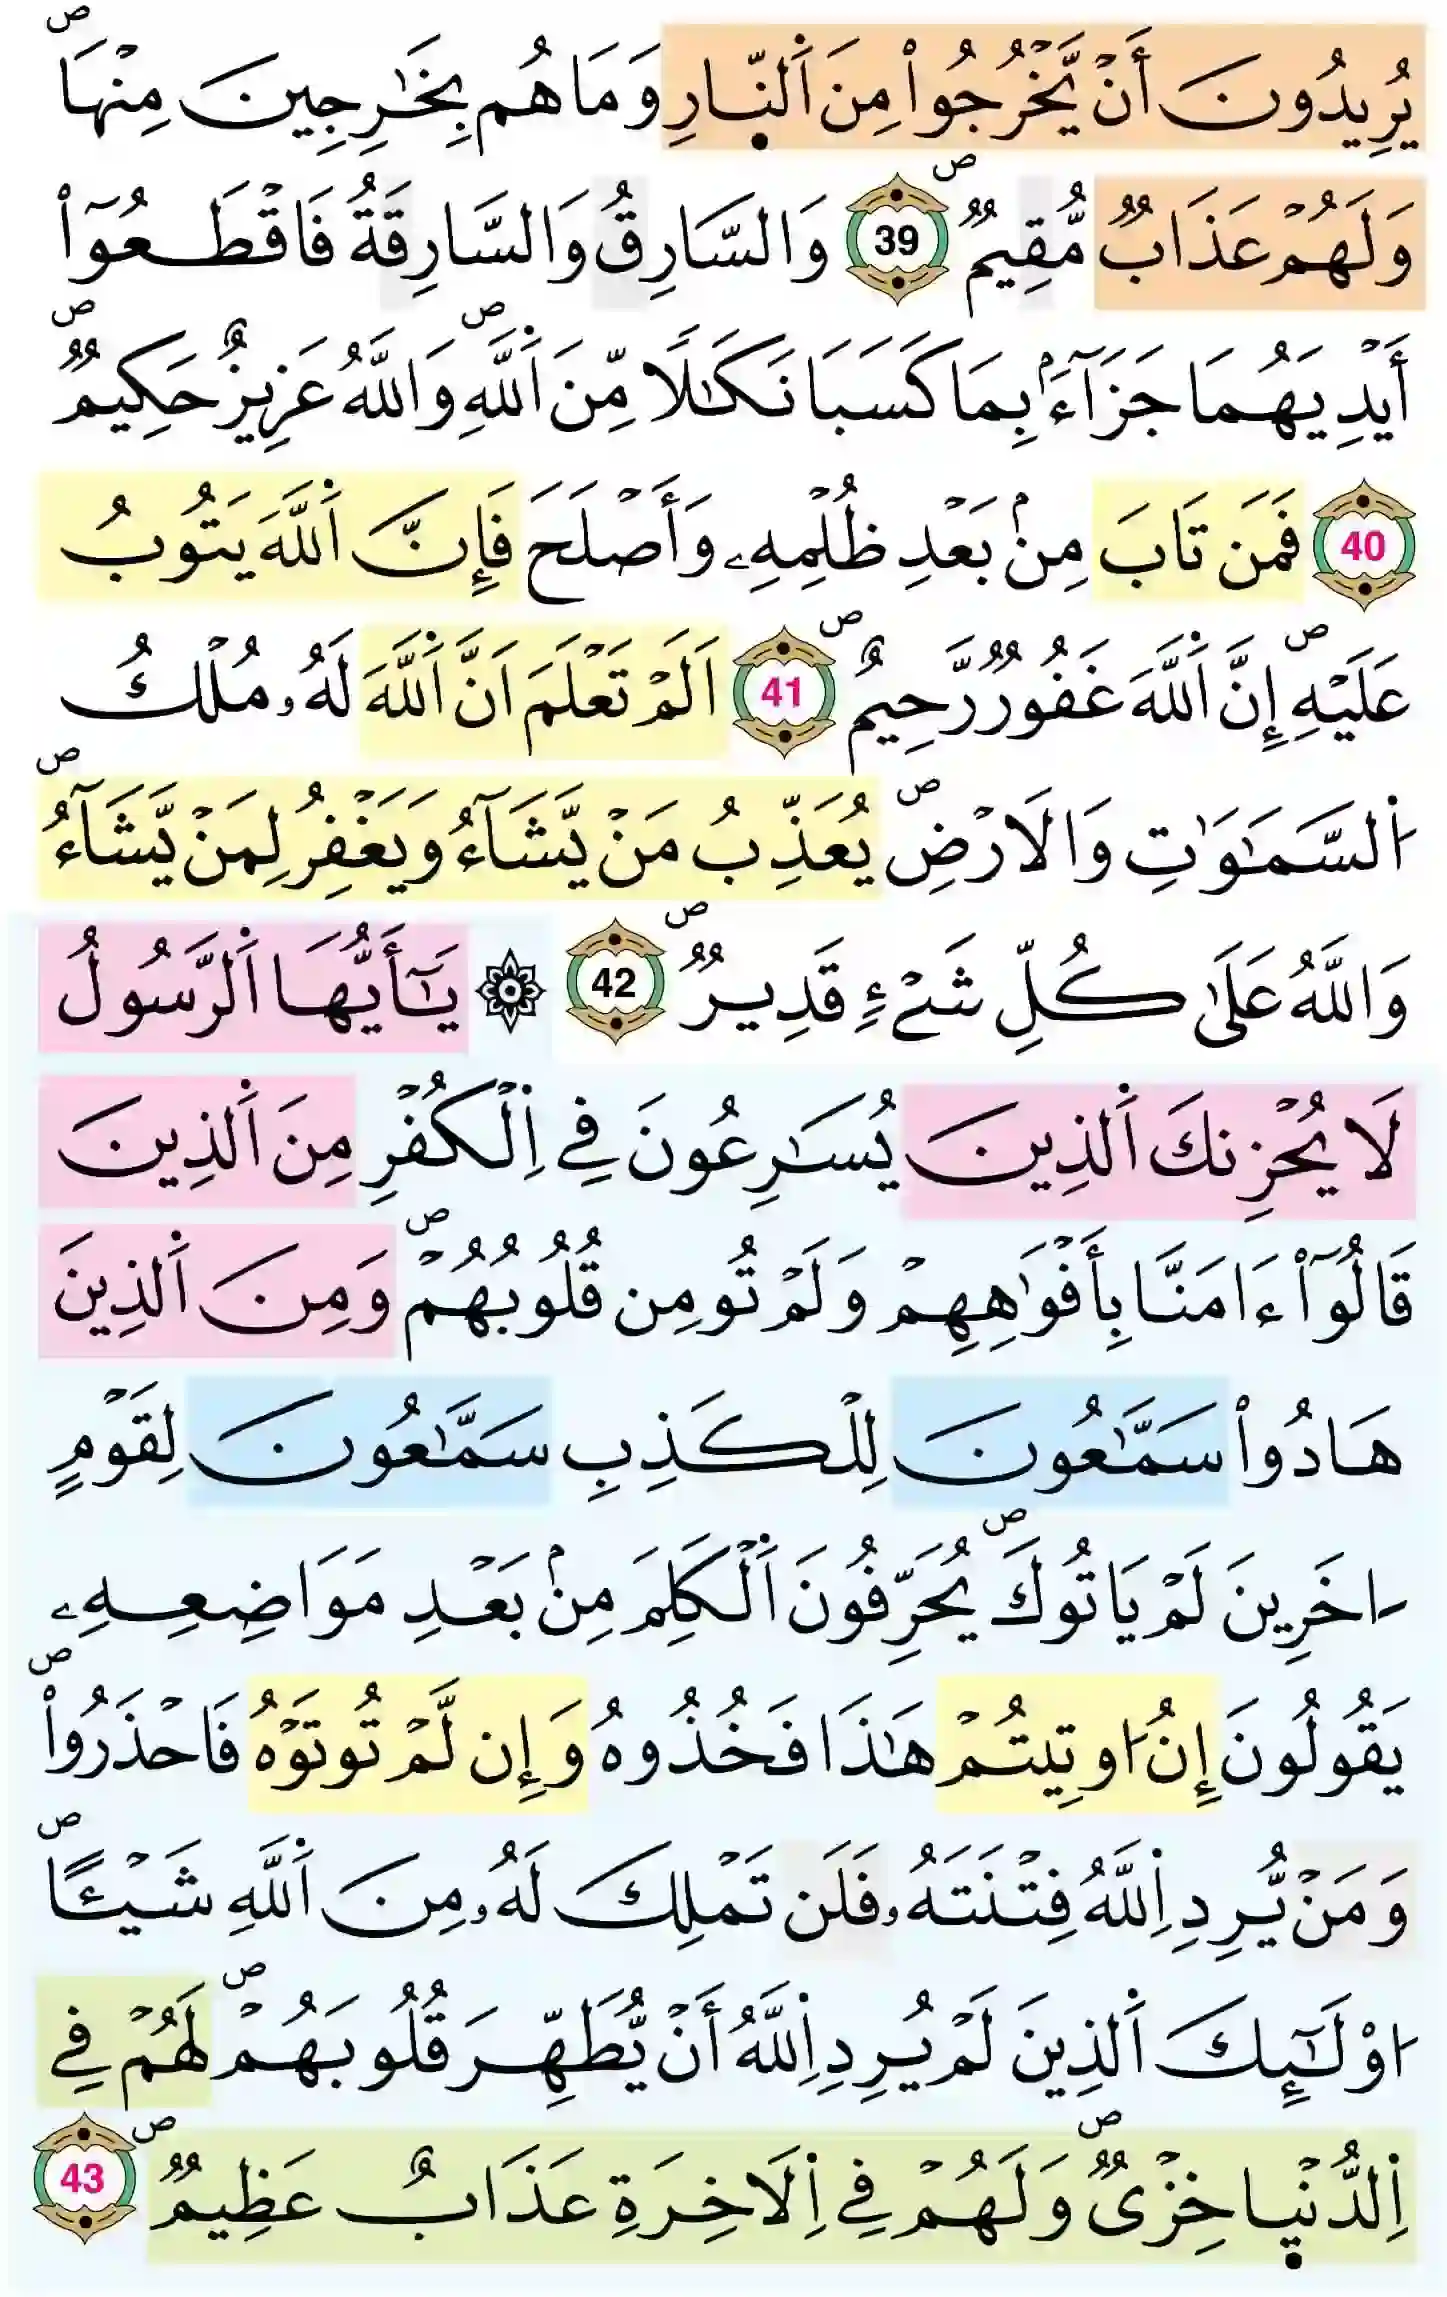 يُرِيدُونَ أَنْ يَّخْرُجُواْ مِنَ اَ۬لنّ۪ارِ وَمَا هُم بِخَٰرِجِينَ مِنْهَاۖ
وَلَهُمْ عَذَابٞ مُّقِيمٞۖ 39 وَالسَّارِقُ وَالسَّارِقَةُ فَاقْطَعُوٓاْ
أَيْدِيَهُمَا جَزَآءَۢ بِمَا كَسَبَا نَكَٰلاٗ مِّنَ اَ۬للَّهِۖ وَاللَّهُ عَزِيزٌ حَكِيمٞۖ
40 فَمَن تَابَ مِنۢ بَعْدِ ظُلْمِهِۦ وَأَصْلَحَ فَإِنَّ اَ۬للَّهَ يَتُوبُ
عَلَيْهِۖ إِنَّ اَ۬للَّهَ غَفُورٞ رَّحِيمٌۖ 41 اَلَمْ تَعْلَمَ اَنَّ اَ۬للَّهَ لَهُۥ مُلْكُ
اُ۬لسَّمَٰوَٰتِ وَالَارْضِۖ يُعَذِّبُ مَنْ يَّشَآءُ وَيَغْفِرُ لِمَنْ يَّشَآءُۖ
وَاللَّهُ عَلَىٰ كُلِّ شَےْءٖ قَدِيرٞۖ 42 ۞ يَٰٓأَيُّهَا اَ۬لرَّسُولُ
لَا يُحْزِنكَ اَ۬لذِينَ يُسَٰرِعُونَ فِے اِ۬لْكُفْرِ مِنَ اَ۬لذِينَ
قَالُوٓاْ ءَامَنَّا بِأَفْوَٰهِهِمْ وَلَمْ تُومِن قُلُوبُهُمْۖ وَمِنَ اَ۬لذِينَ
هَادُواْ سَمَّٰعُونَ لِلْكَذِبِ سَمَّٰعُونَ لِقَوْمٍ
اٰخَرِينَ لَمْ يَاتُوكَۖ يُحَرِّفُونَ اَ۬لْكَلِمَ مِنۢ بَعْدِ مَوَاضِعِهِۦ
يَقُولُونَ إِنُ ا۟وتِيتُمْ هَٰذَا فَخُذُوهُ وَإِن لَّمْ تُوتَوْهُ فَاحْذَرُواْۖ
وَمَنْ يُّرِدِ اِ۬للَّهُ فِتْنَتَهُۥ فَلَن تَمْلِكَ لَهُۥ مِنَ اَ۬للَّهِ شَيْـٔاًۖ
ا۟وْلَٰٓئِكَ اَ۬لذِينَ لَمْ يُرِدِ اِ۬للَّهُ أَنْ يُّطَهِّرَ قُلُوبَهُمْۖ لَهُمْ فِے
اِ۬لدُّنْي۪ا خِزْيٞۖ وَلَهُمْ فِے اِ۬لَاخِرَةِ عَذَابٌ عَظِيمٞۖ 43